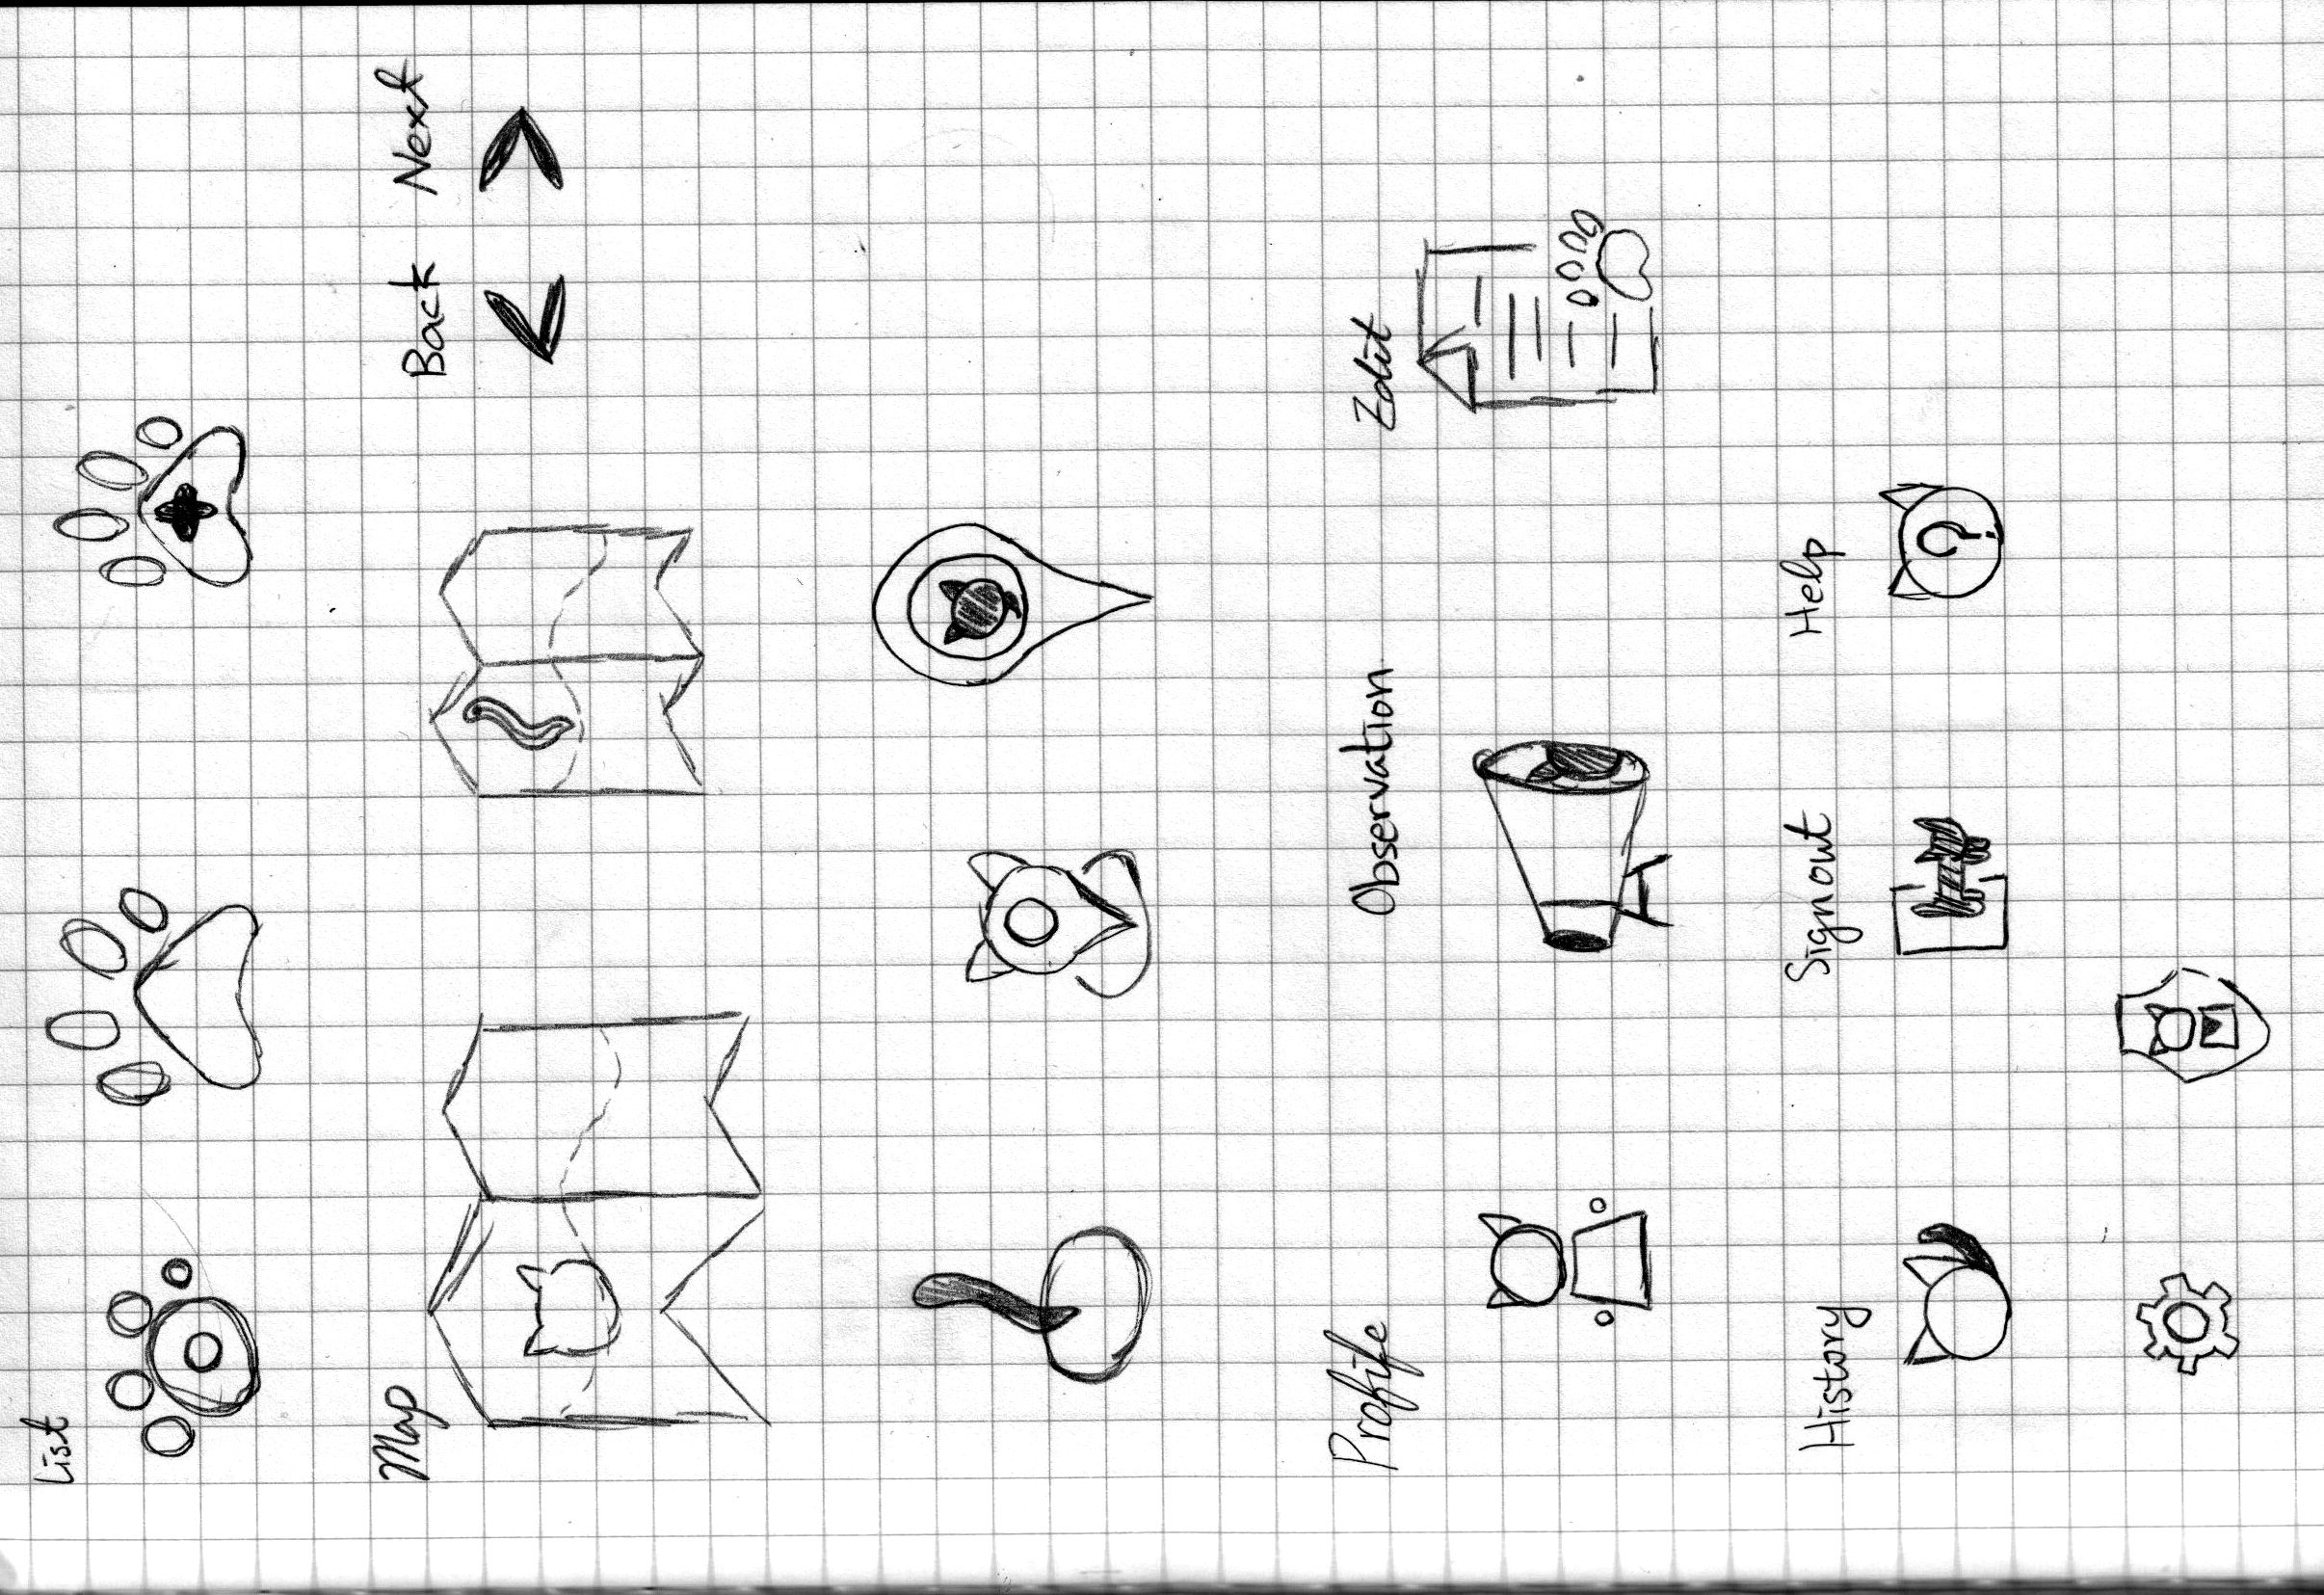 List
Map
Back Next
Profile
Observation
Edit
History
Signout
Help
?